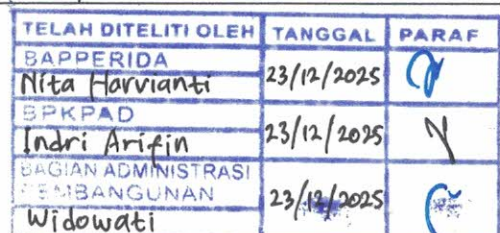 TELAH DITELITI OLEH TANGGAL PARAF
BAPPERIDA
Nita Harvianti 23/12/2025
BPKPAD
Indri Arifin 23/12/2025
BAGIAN ADMINISTRASI
PEMBANGUNAN 23/12/2025
Widowati